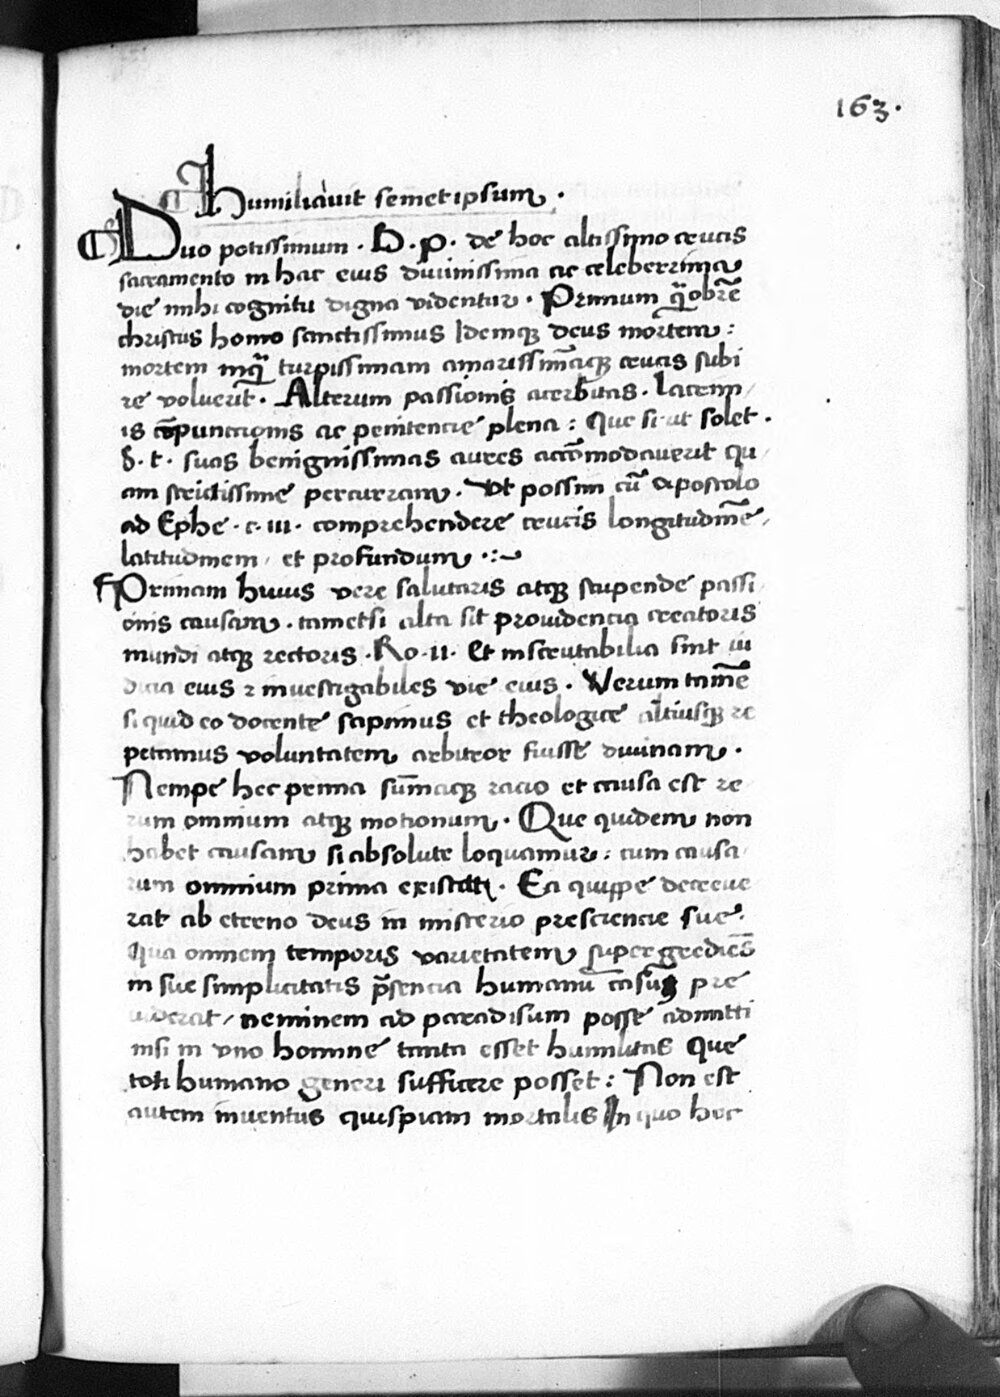 163.
Humiliavit semetipsum .
Duo potissimum . B . p . de hoc altissimo crucis
sacramento in hac eius divinissima ac celeberrima
die mihi cognitu digna videntur . Primum qͣobrē
christus homo sanctissimus Idemqꝫ deus mortem :
mortem inqͣ turpissimam amarissimāqꝫ crucis subi
re voluerit . Alterum passionis acerbitas . lacrim /
is cōpunctionis ac penitencie plena : Que si ut solet .
b . t . suas benignissimas aures accōmodaverit qu /
am strictissime percurram . Vt possim cū apostolo
ad Ephe . c . iii . comprehendere crucis longitudinē /
latitudinem / et profundum .:~
Primam huius vere salutaris atqꝫ stupende passi
onis causam . tametsi alta sit providencia creatoris
mundi atqꝫ rectoris . Ro . 11 . Et inscrutabilia sint iu
dicia eius ⁊ investigabiles vie eius . Verum tamē
si quid eo docente sapimus et theologice altiusqꝫ re
petamus voluntatem arbitror fuisse divinam .
Nempe hec prima sūmaqꝫ racio et causa est re
rum omnium atqꝫ motionum . Que quidem non
habet causam si absolute loquamur : cum causa
rum omnium prima existat . Ea quippe decreve
rat ab eterno deus in misterio presciencie sue .
Qua omnem temporis varietatem supergrediēs
in sue simplicitatis p̄sencia humanū casū pre
viderat / neminem ad paradisum posse admitti
nisi in vno homine tanta esset humilitas que
toti humano generi sufficere posset : Non est
autem inventus quispiam mortalis In quo hec